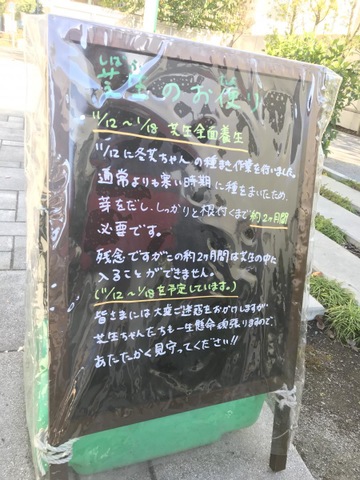 しばふ
芝生のお便り
11/12〜1/18 芝生全面養生
11/12に冬芝ちゃんの種まき作業を行いました。
通常よりも寒い時期に種をまいたため、
芽をだし、しっかりと根付くまで約2ヶ月間
必要です。
残念ですがこの約2ヶ月間は芝生の中に
入ることができません。
(11/12〜1/18を予定しています。)
皆さまには大変ご迷惑をおかけしますが
芝生ちゃんたちも一生懸命頑張りますので、
あたたかく見守ってください!!